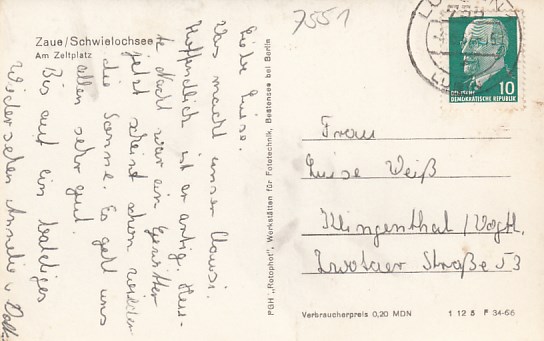 7551
Zaue/Schwielochsee
Am Zeltplatz
Liebe Luise.
Was macht unser Clausi.
Hoffendlich ist er artig. Heu-
te Nacht war ein Gewitter
jetzt scheint schon wieder
die Sonne. Es geht uns
allen sehr gut.
Bis auf ein baldiges
Wiedersehen Annelie u
PGH „Rotophot“, Werkstätten für Fototechnik, Bestensee bei Berlin
10
DEMOKRATISCHE REPUBLIK
Frau
Luise Weiß
Klingenthal/Vogtl.
Zwotaer Straße 53
Verbraucherpreis 0,20 MDN
1 12 8 P 34-66